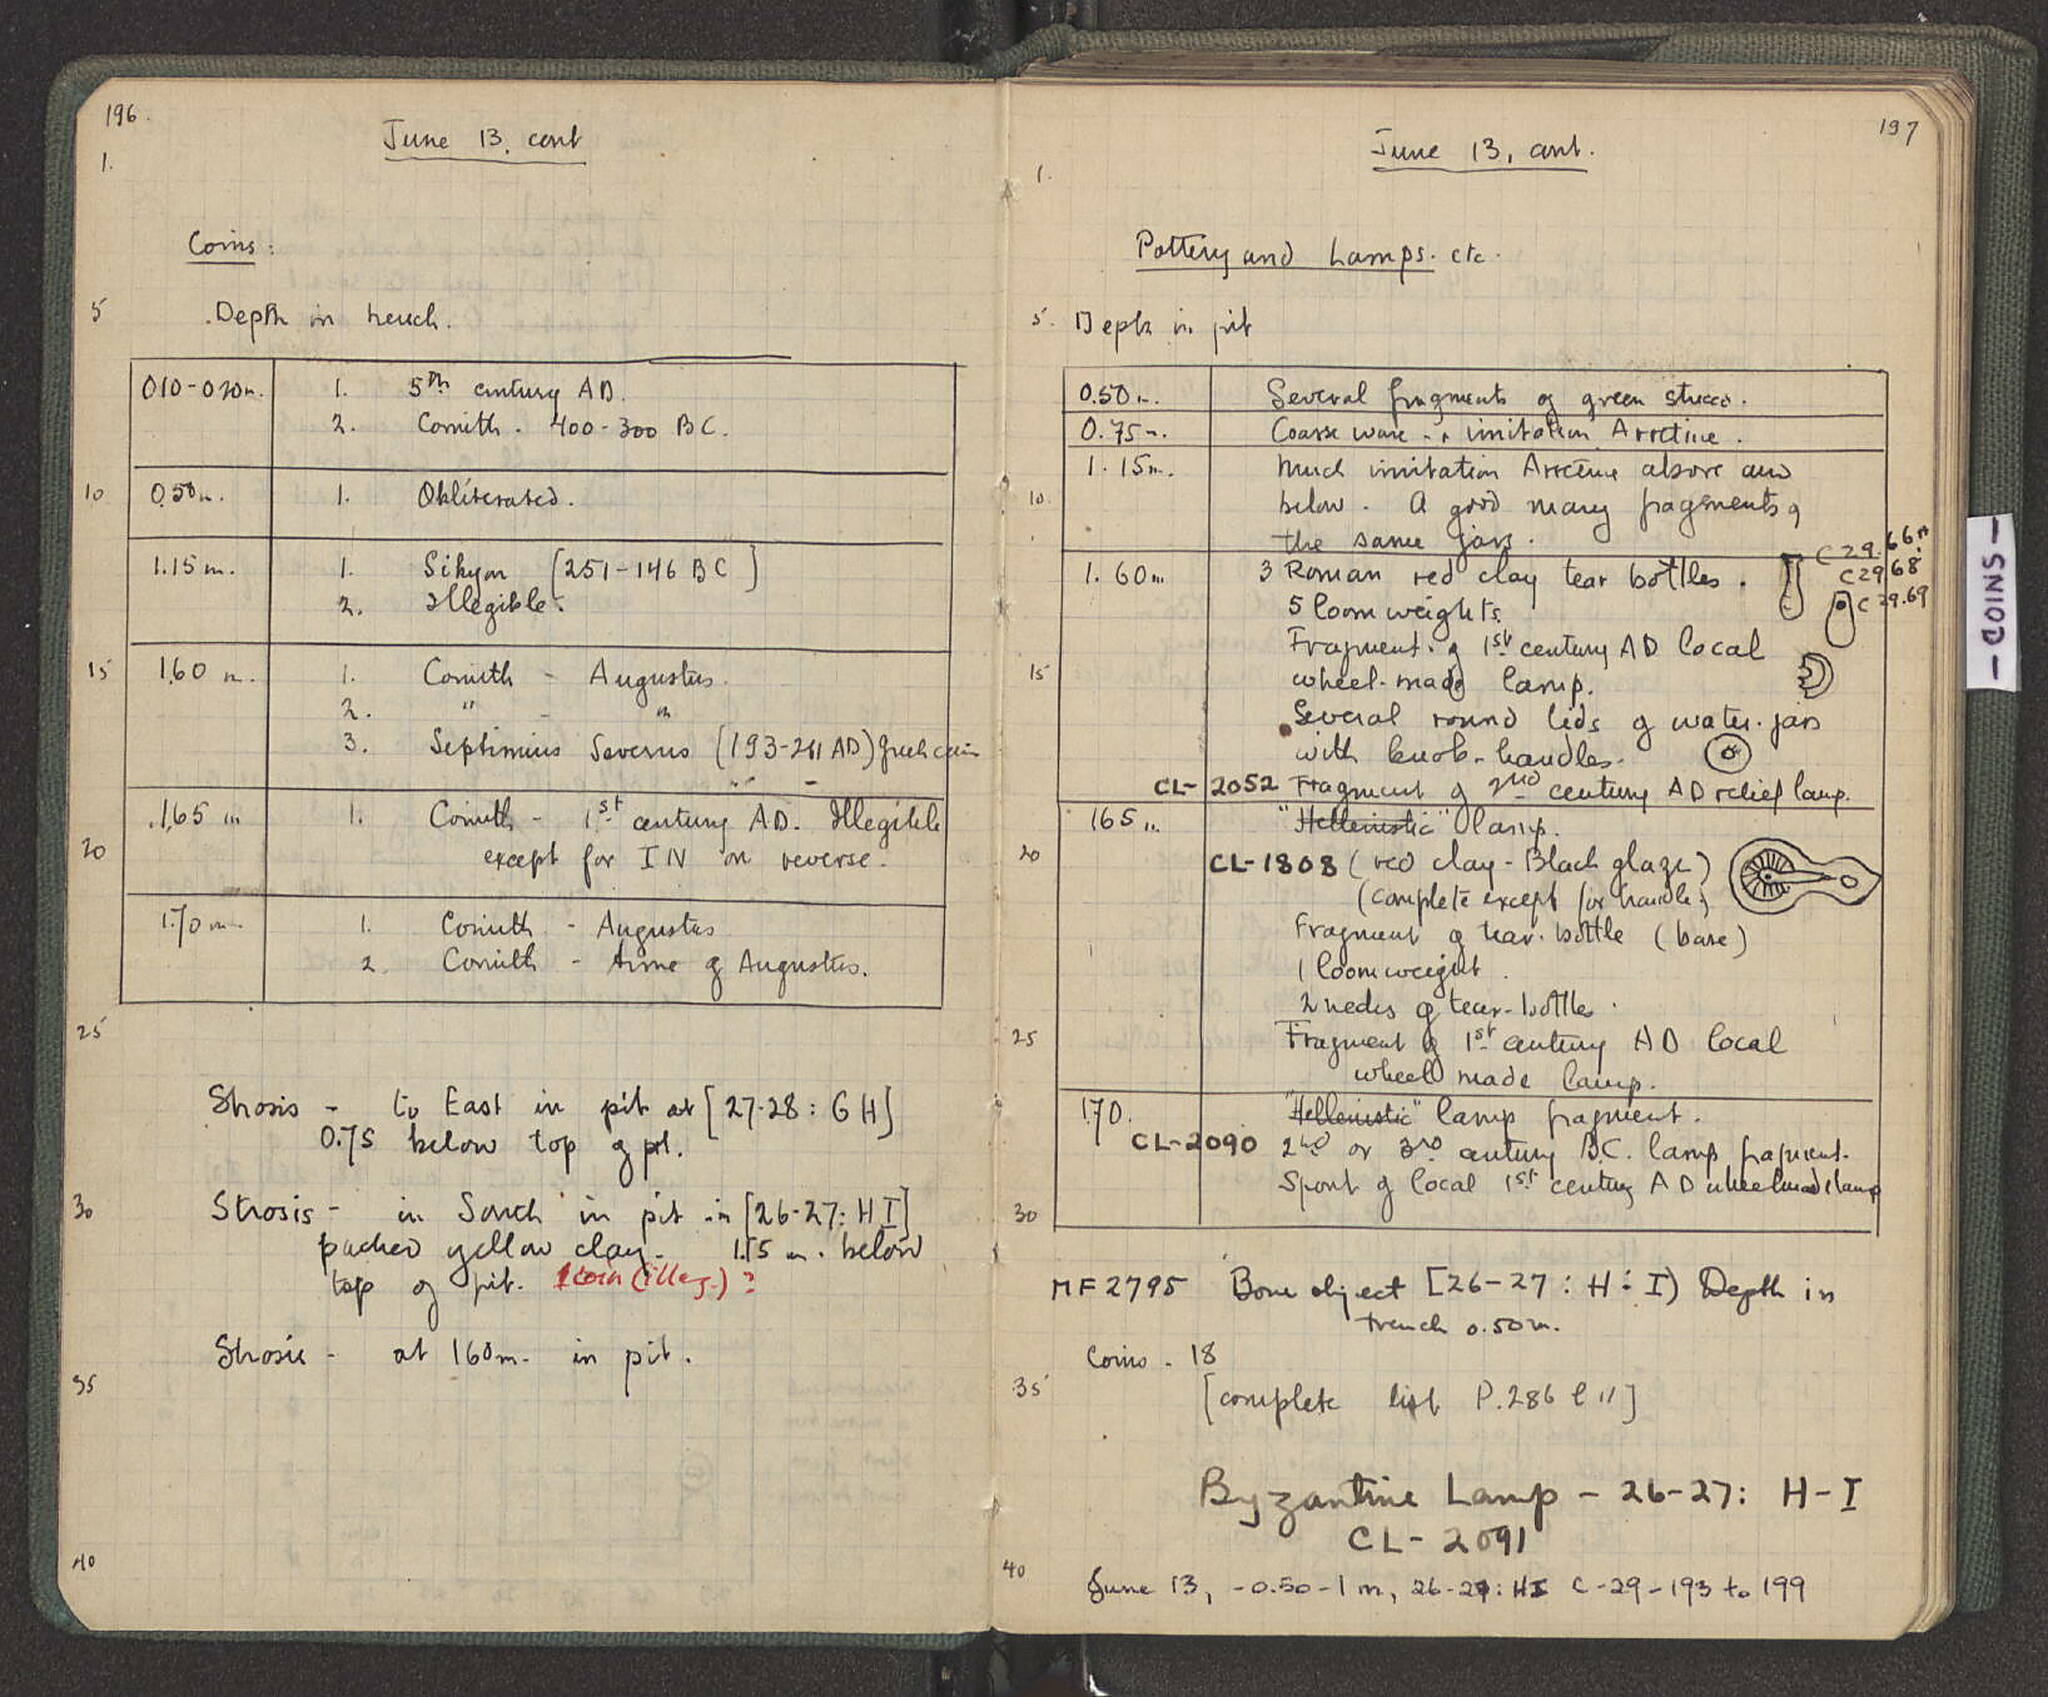 196.
June 13. cont
1.
Coins:
5
Depth in trench.
0.10-0.20m. 1. 5th century AD.
2. Corinth. 400-300 BC.
10 0.50m. 1. Obliterated.
1.15 m. 1. Sikyon [251-146 BC]
2. Illegible.
15 1.60 m. 1. Corinth - Augustus.
2. " - "
3. Septimius Severus (193-211 AD) Greek coin
1.65 m 1. Corinth - 1st century AD. Illegible
20 except for IN on reverse.
1.70 m 1. Corinth - Augustus
2. Corinth - time of Augustus.
25
Strosis - to East in pit at [27-28: G H]
0.75 below top of pit.
30 Strosis - in South in pit in [26-27: H I]
packed yellow clay. 1.15 m. below
top of pit. 1 coin (illeg.)?
Strosis - at 160m. in pit.
35
40
197
June 13, cont.
1.
Pottery and Lamps. etc.
5. Depth in pit
0.50m. Several fragments of green stucco.
0.75m. Coarse ware - + imitation Arretine.
1.15m. Much imitation Arretine above and
10. below. A good many fragments of
the same jars.
1.60m 3 Roman red clay tear bottles. C 29.66
C 29 68
5 loomweights. C 29.69
Fragment of 1st century AD local
15 wheel-made lamp.
Several round lids of water-jars
with knob-handles.
CL-2052 Fragment of 2nd century AD relief lamp.
165 m. "Hellenistic" lamp.
20 CL-1808 (red clay - Black glaze)
(complete except for handle)
Fragment of tear-bottle (base)
1 loomweight.
2 necks of tear-bottles.
25 Fragment of 1st century AD local
wheel made lamp.
1.70. "Hellenistic" lamp fragment.
CL-2090 2nd or 3rd century B.C. lamp fragment.
Spout of local 1st century AD wheelmade lamp
30
MF 2795 Bone object [26-27: H: I) Depth in
trench 0.50m.
Coins - 18
35 [complete list P.286 l 11]
Byzantine Lamp - 26-27: H-I
CL-2091
40 June 13, -0.50-1 m, 26-27: HI C-29-193 to 199
- COINS -